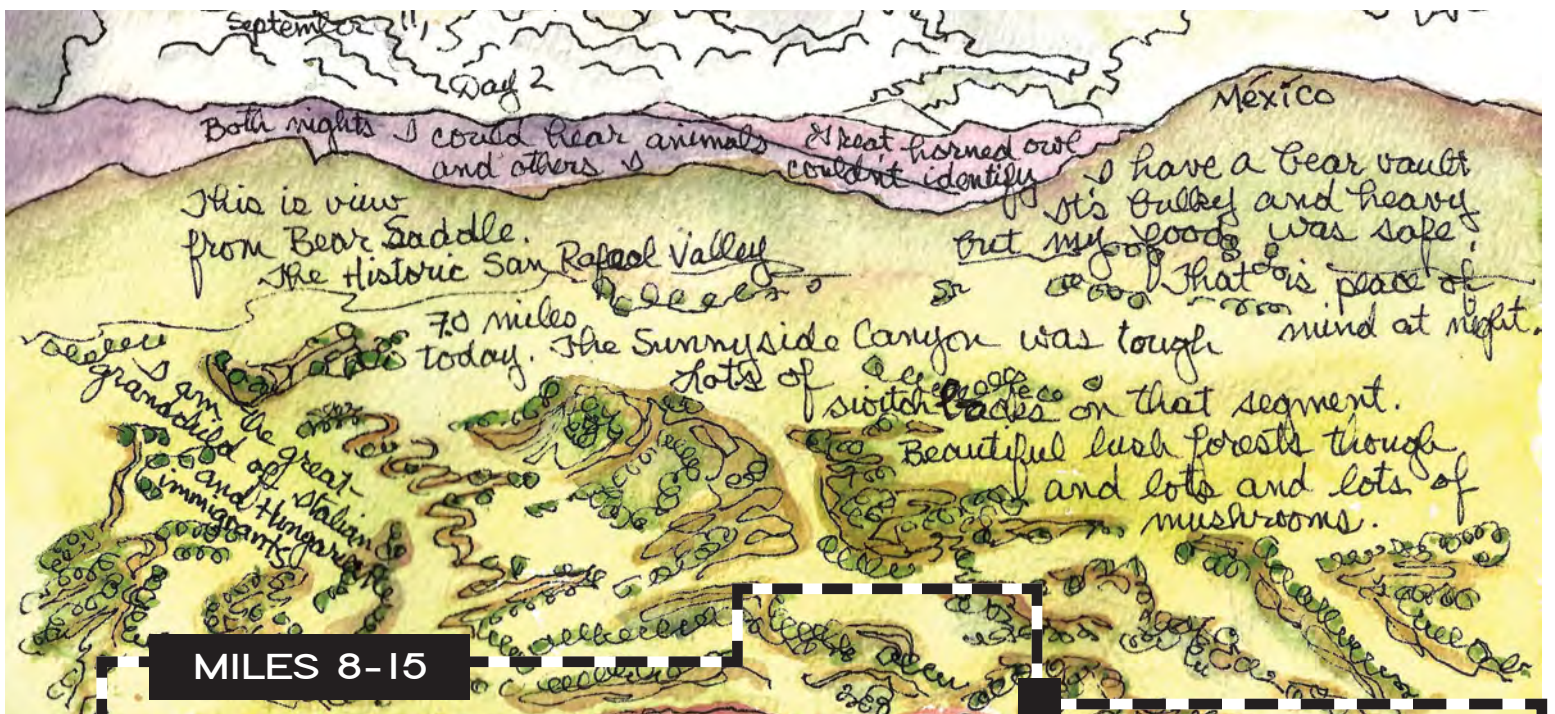 September 11,
Day 2
México
Both nights I could hear animals Great horned owl
and others I couldnt identify
This is view
from Bear Saddle.
The Historic San Rafael Valley
I have a bear vault
It's bulky and heavy
but my food was safe.
That is peace of
mind at night.
7.0 miles
today. The Sunnyside Canyon was tough
Lots of
switchbacks on that segment.
Beautiful lush forests though
and lots and lots of
mushrooms.
I am the great-
grandchild of Italian
and Hungarian
immigrants
MILES 8-15